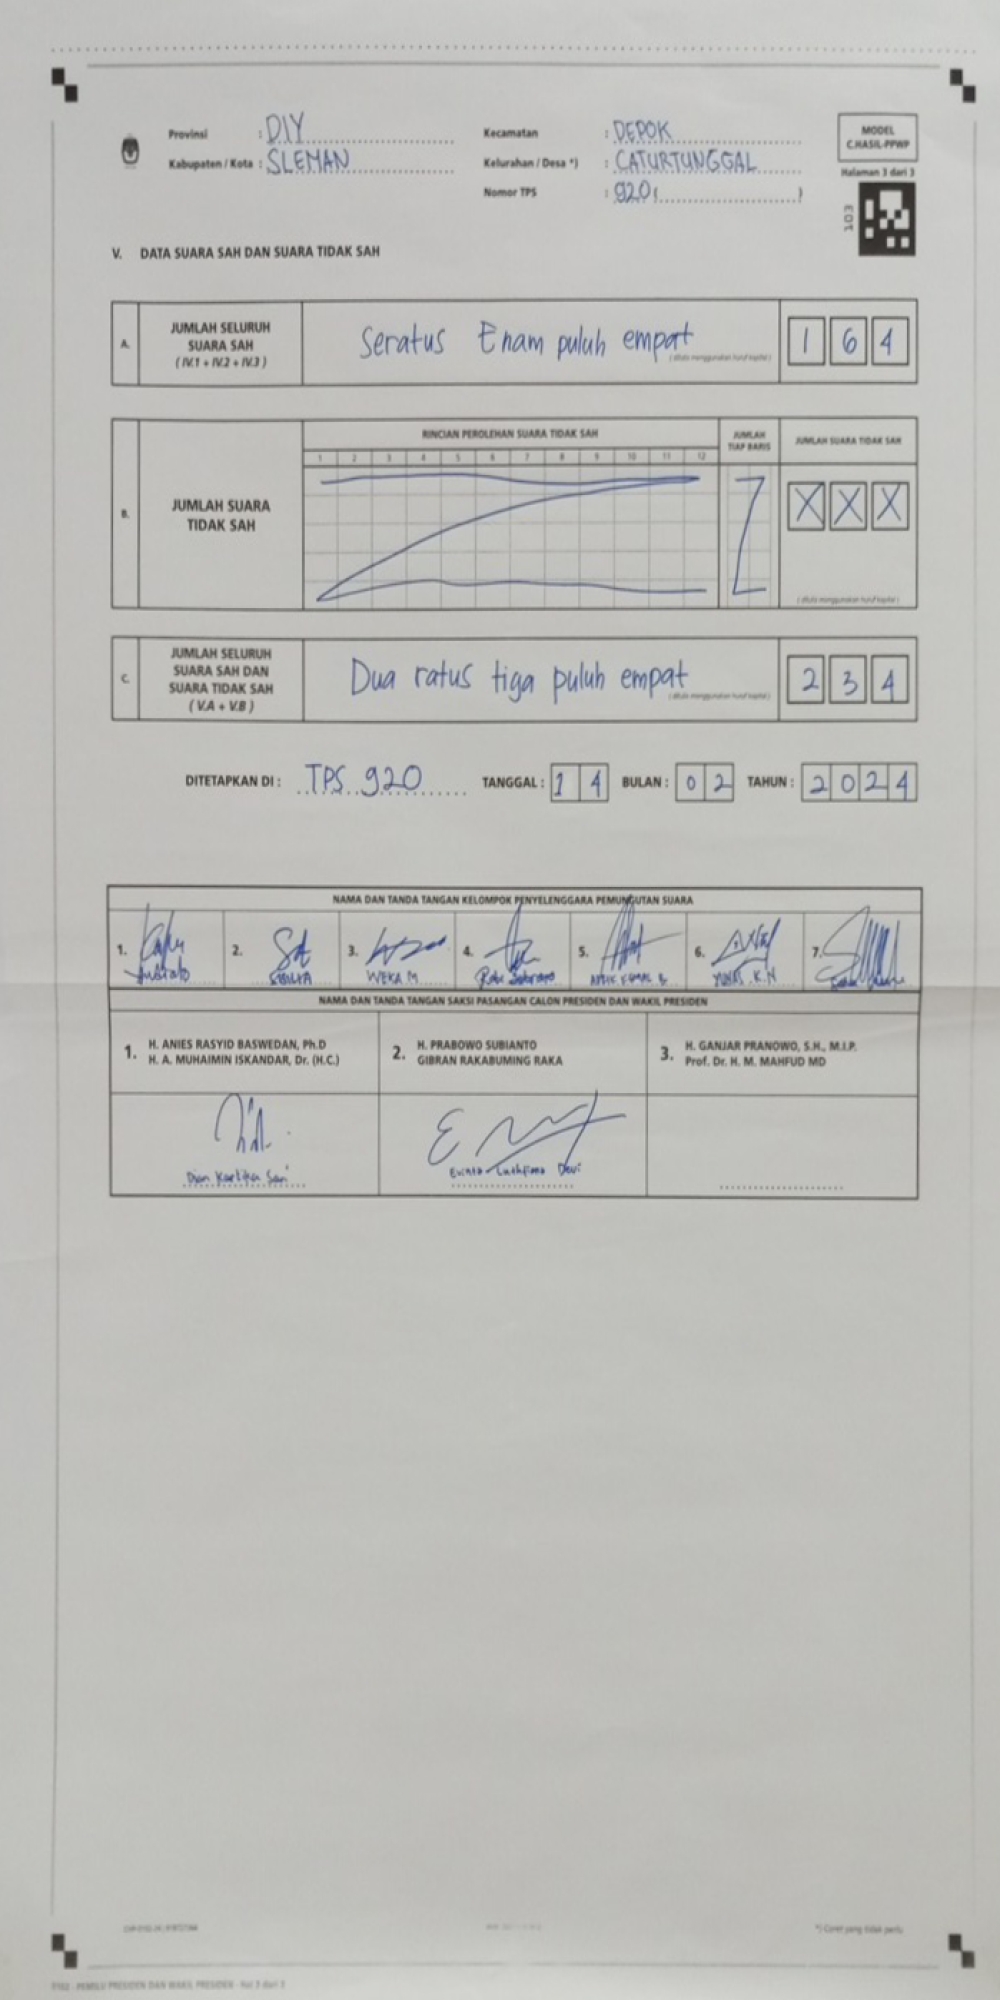 Provinsi : DIY
Kabupaten / Kota : SLEMAN
Kecamatan : DEPOK
Kelurahan / Desa *) : CATURTUNGGAL
Nomor TPS : 920 (..........)
MODEL
C.HASIL-PPWP
Halaman 3 dari 3
103
V. DATA SUARA SAH DAN SUARA TIDAK SAH
A. JUMLAH SELURUH
SUARA SAH
( IV.1 + IV.2 + IV.3 )
Seratus Enam puluh empat
( ditulis menggunakan huruf kapital )
1 6 4
B. JUMLAH SUARA
TIDAK SAH
RINCIAN PEROLEHAN SUARA TIDAK SAH
1 2 3 4 5 6 7 8 9 10 11 12
JUMLAH
TIAP BARIS
JUMLAH SUARA TIDAK SAH
X X X
( ditulis menggunakan huruf kapital )
C. JUMLAH SELURUH
SUARA SAH DAN
SUARA TIDAK SAH
( V.A + V.B )
Dua ratus tiga puluh empat
( ditulis menggunakan huruf kapital )
2 3 4
DITETAPKAN DI : TPS 920 TANGGAL : 1 4 BULAN : 0 2 TAHUN : 2 0 2 4
NAMA DAN TANDA TANGAN KELOMPOK PENYELENGGARA PEMUNGUTAN SUARA
1. 2. 3. 4. 5. 6. 7.
WEKA M YUNAS . K.N
NAMA DAN TANDA TANGAN SAKSI PASANGAN CALON PRESIDEN DAN WAKIL PRESIDEN
1. H. ANIES RASYID BASWEDAN, Ph.D
H. A. MUHAIMIN ISKANDAR, Dr. (H.C.)
2. H. PRABOWO SUBIANTO
GIBRAN RAKABUMING RAKA
3. H. GANJAR PRANOWO, S.H., M.I.P.
Prof. Dr. H. M. MAHFUD MD
Dian Kartika Sari
Devi
*) Coret yang tidak perlu
PEMILU PRESIDEN DAN WAKIL PRESIDEN - Hal 3 dari 3